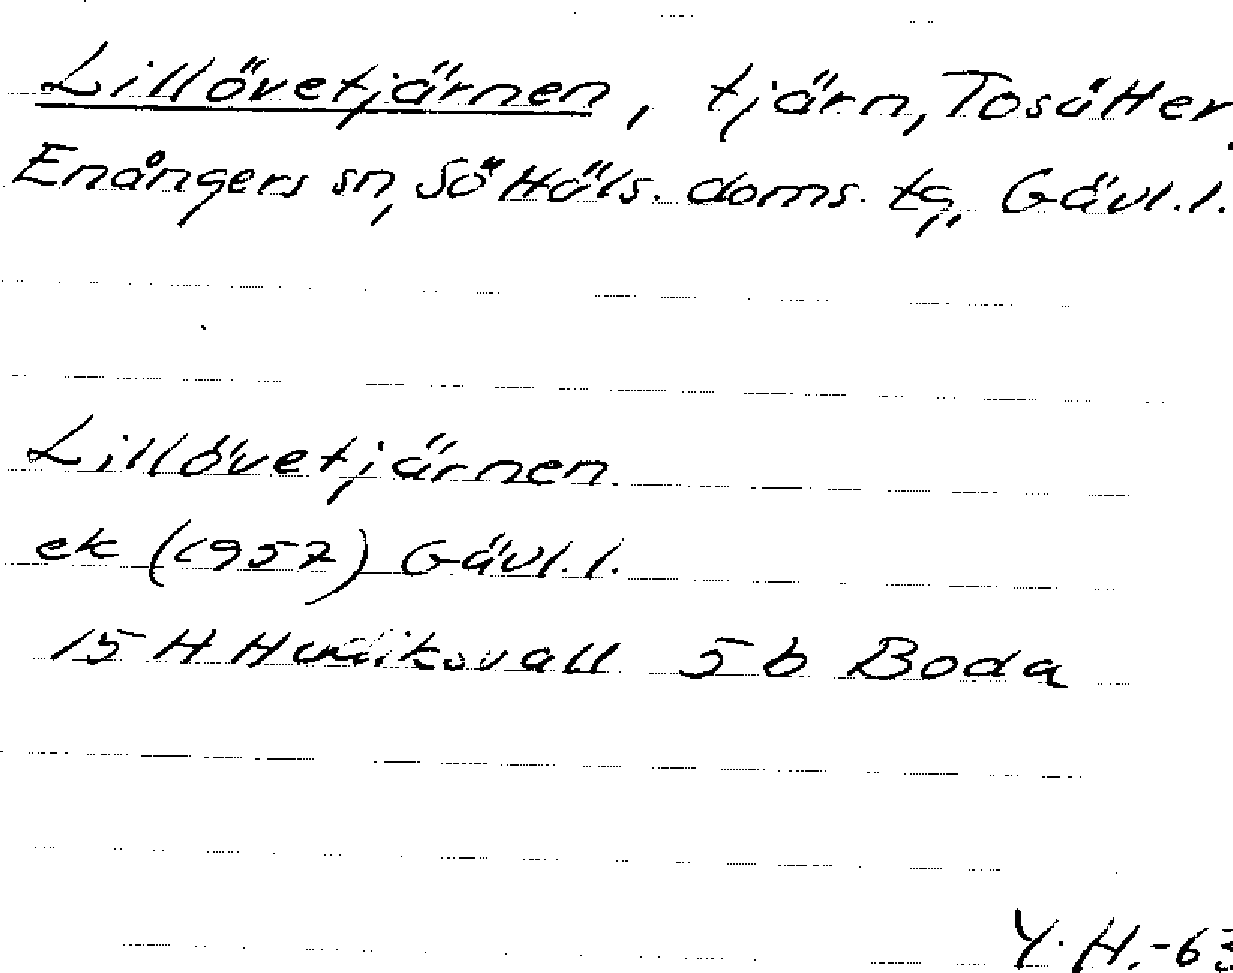 Lillövetjärnen, tjärn, Tosätter,
Enångers sn, Sö Häls. doms. tg, Gävl.l.
Lillövetjärnen.
ek (1957) Gävl.l.
15 H Hudiksvall 5b Boda
Y.H.-63